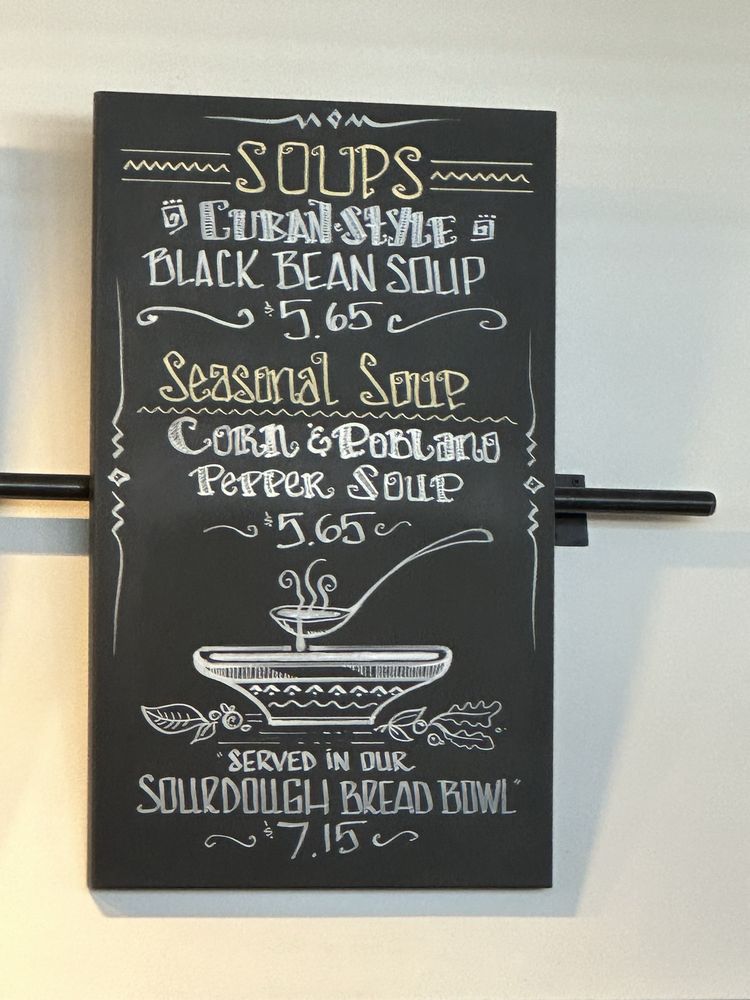 SOUPS
CUBAN-STYLE
BLACK BEAN SOUP
$5.65
Seasonal Soup
CORN & POBLANO
PEPPER SOUP
$5.65
"SERVED IN OUR
SOURDOUGH BREAD BOWL"
$7.15